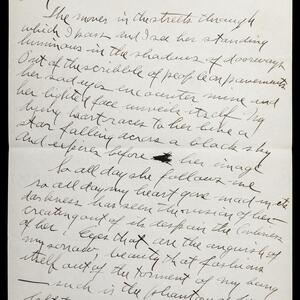 She moves in the streets through
which I pass and I see her standing
luminous in the shadows of doorways
Out of the scribble of people on pavements
her sad eyes encounter mine and
her lighted face unveils itself.
my heart races to her like a
star falling across a black sky
and expires before her image
So all day she follows me
so all day my heart gone mad in its
darkness has seen the vision of her
creating out of its despair the loveliness
of her. Eyes that are the anguish of
my sorrow, beauty that fashions
itself out of the torment of my being
— such is the phantom